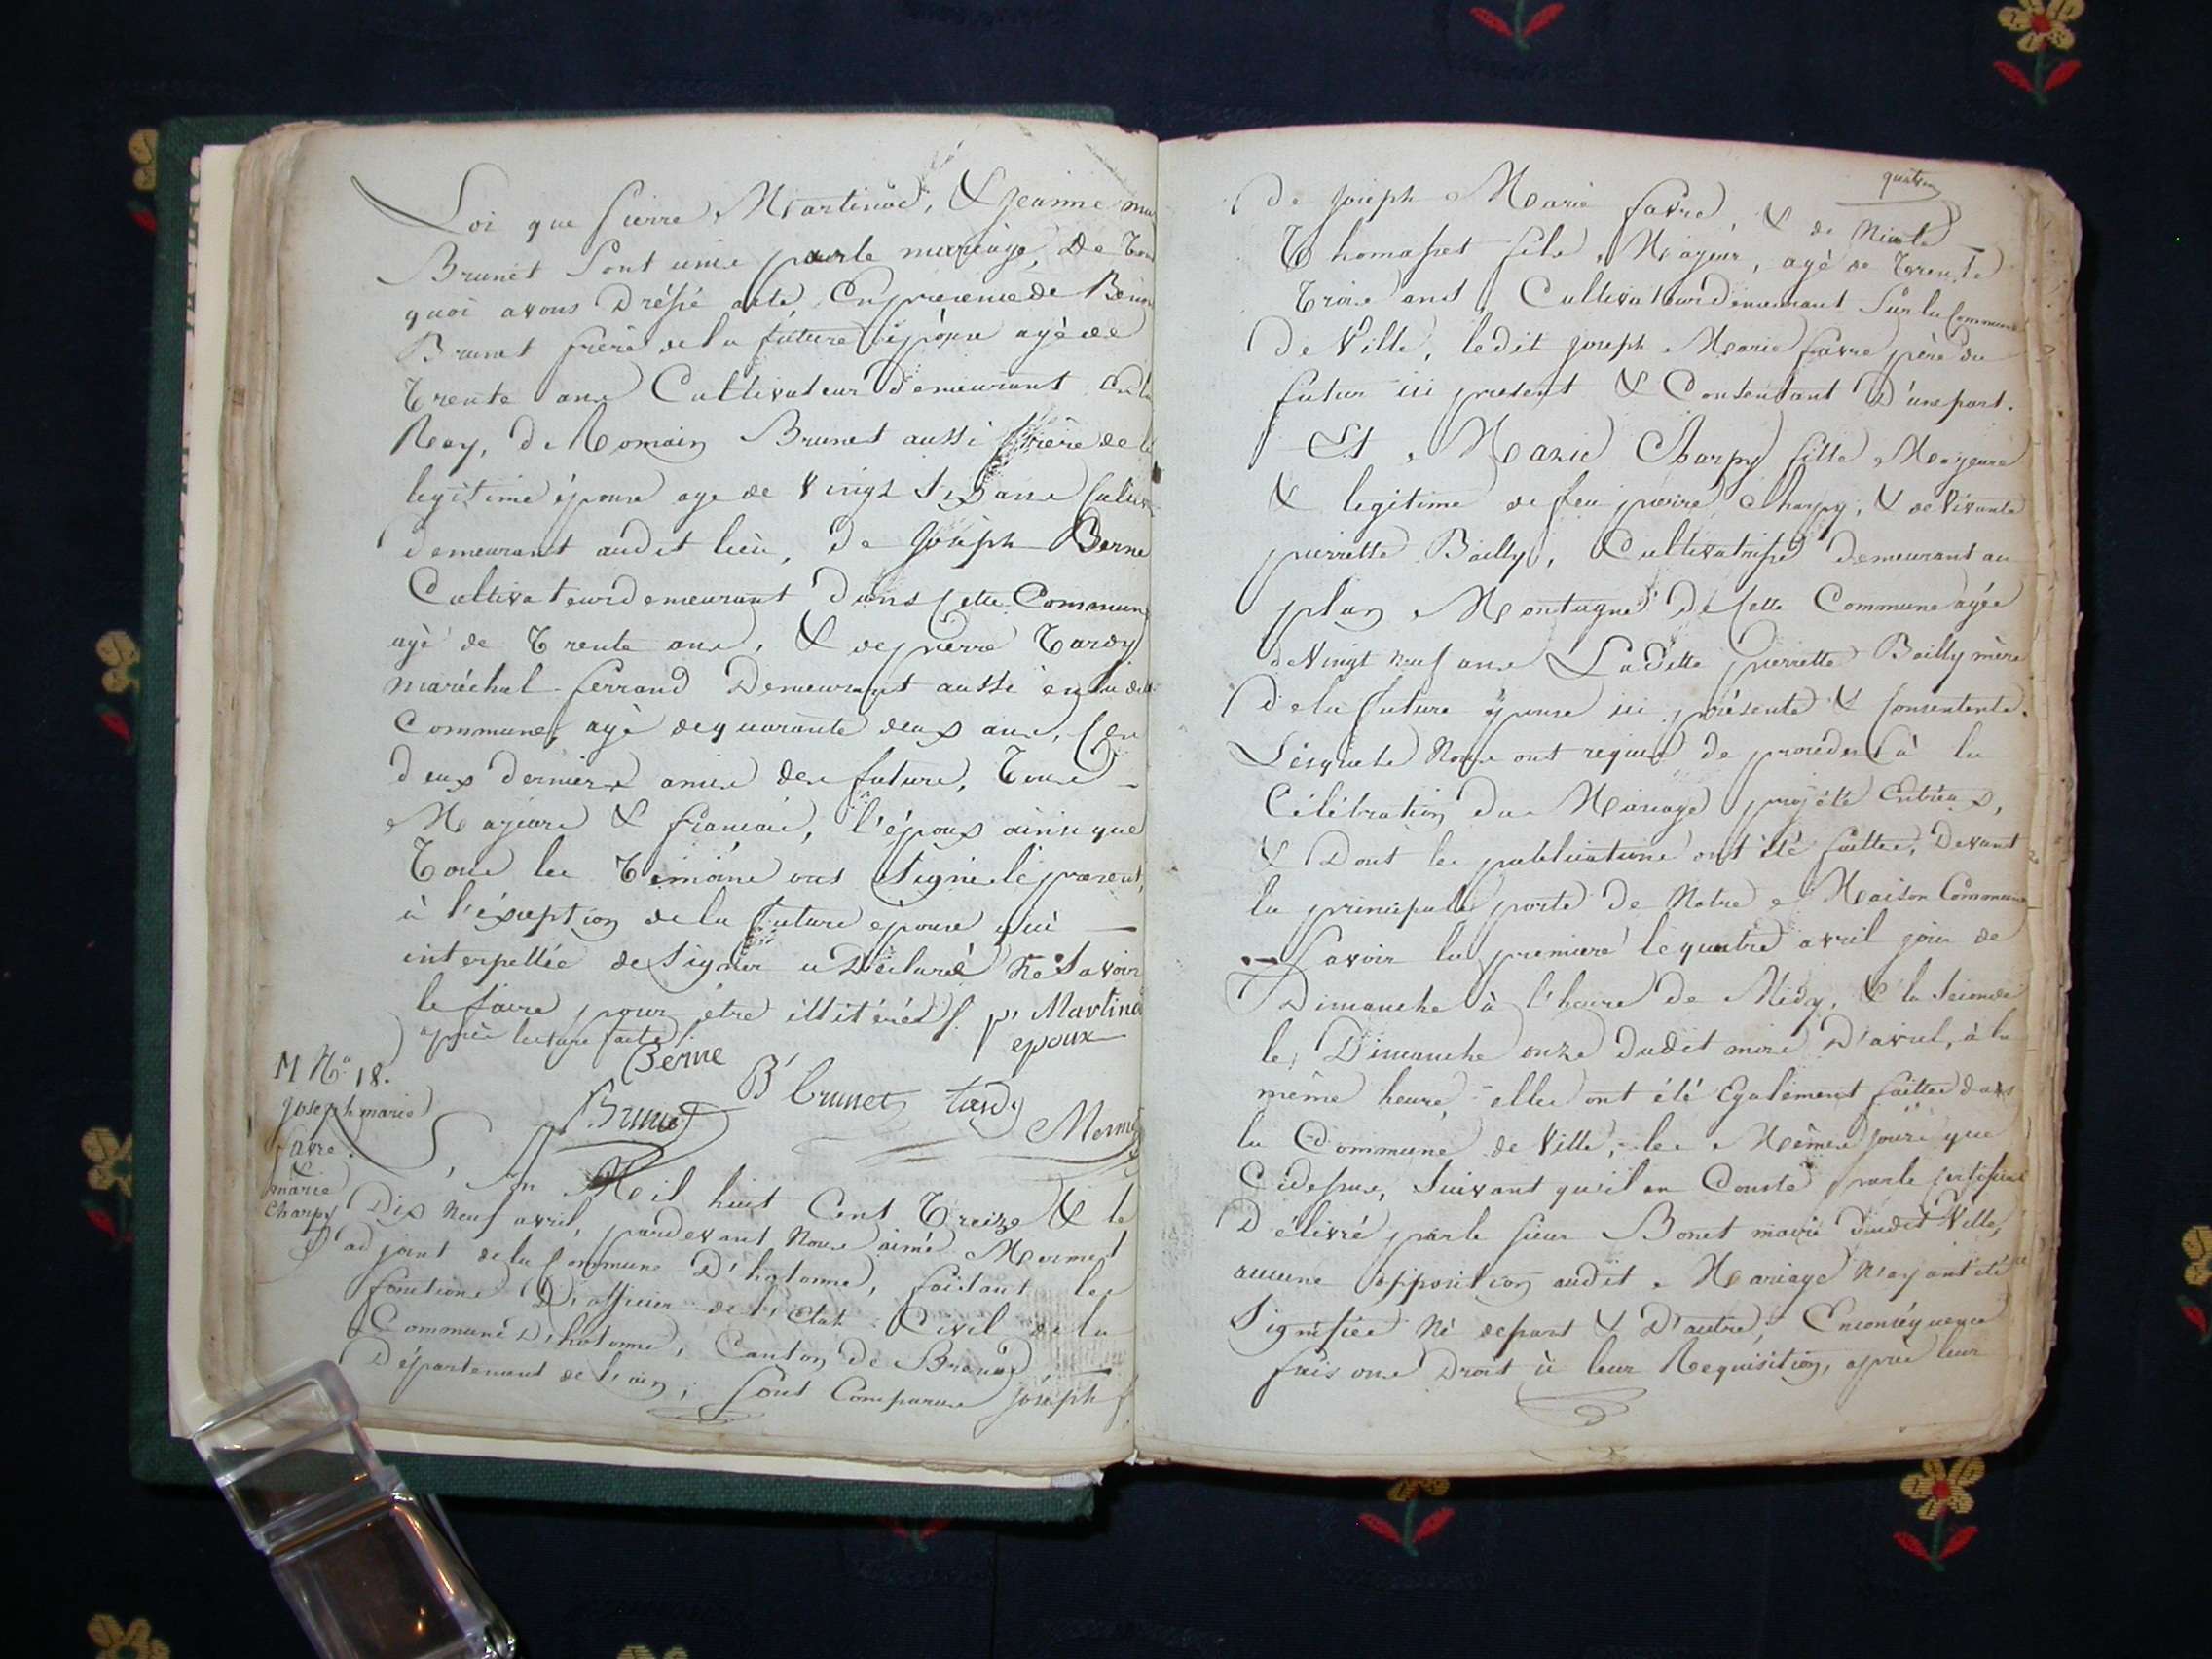 Loi que pierre Martinod, & Jeanne ma
Brunet Sont unis par le mariage, De tout
quoi avons Dréssé acte, En presence de Benoi
Brunet frère de la future épouse agé de
Trente ans Cultivateur demeurant En la
Rey, de Romain Brunet aussi frère de la
legitime épouse age de Vingt Six ans Cultiv
demeurant audit lieu, de Joseph Berne
Cultivateur demeurant dans Cette Commune
agé de Trente ans, & de pierre Tardy
maréchal ferrand Demeurant aussi en la ditte
Commune, agé de quarante deux ans, Ces
deux derniers amis des futurs, Tous
Majeurs & francais, l'époux ainsi que
Tous les Témoins ont Signé le present,
à l'éxception de la future épouse qui
interpellée de Signer a Déclaré Ne Savoir
le faire pour être illitérée /. p. Martinod
après lecture faite / epoux
Berne
Brunet B. brunet tardy
Mermet
M No. 18.
Joseph marie
favre.
&
marie
Charpy
L'an Mil huit Cent Treize & le
Dix Neuf avril, pardevant Nous aimé Mermet
adjoint de la Commune D'hotonne, faisant les
fonctions D'officier de l'état Civil de la
Commune D'hotonne, Canton de Brenod
Département de l'ain, Sont Comparus Joseph
quatre
De Joseph Marie favre, & de Nicole
Thomasset fils Majeur, agé de Trente
Trois ans, Cultivateur demeurant Sur la Commune
De Ville, ledit Joseph Marie favre père du
futur ici present & Consentant D'une part.
Et Marie Charpy fille Majeure
& legitime de feu pierre Charpy, & de Vivante
pierrette Bailly, Cultivatrisse demeurant au
plan Montagne De Cette Commune agée
de Vingt neuf ans Laditte pierrette Bailly mère
De la future épouse ici présente & Consentente.
Lesquels Nous ont requis de proceder à la
Célébration du Mariage projété Entr'eux,
& Dont les publications ont été faittes, Devant
la principale porte de Notre Maison Commune
Savoir la premiere le quatre avril jour de
Dimanche à l'heure de Midy, & la Seconde
le Dimanche onze dudit mois D'avril, à la
même heure, elles ont été Egalement faittes dans
la Commune de Ville, les Mêmes Jours que
Cidessus, Suivant qu'il en Conste par le Certificat
Délivré par le Sieur Bonet maire dudit Ville,
aucune opposition audit Mariage N'ayant été
Signifiée Ni de part & D'autre; En conséquence
faisons Droit à leur Requisition, après leur